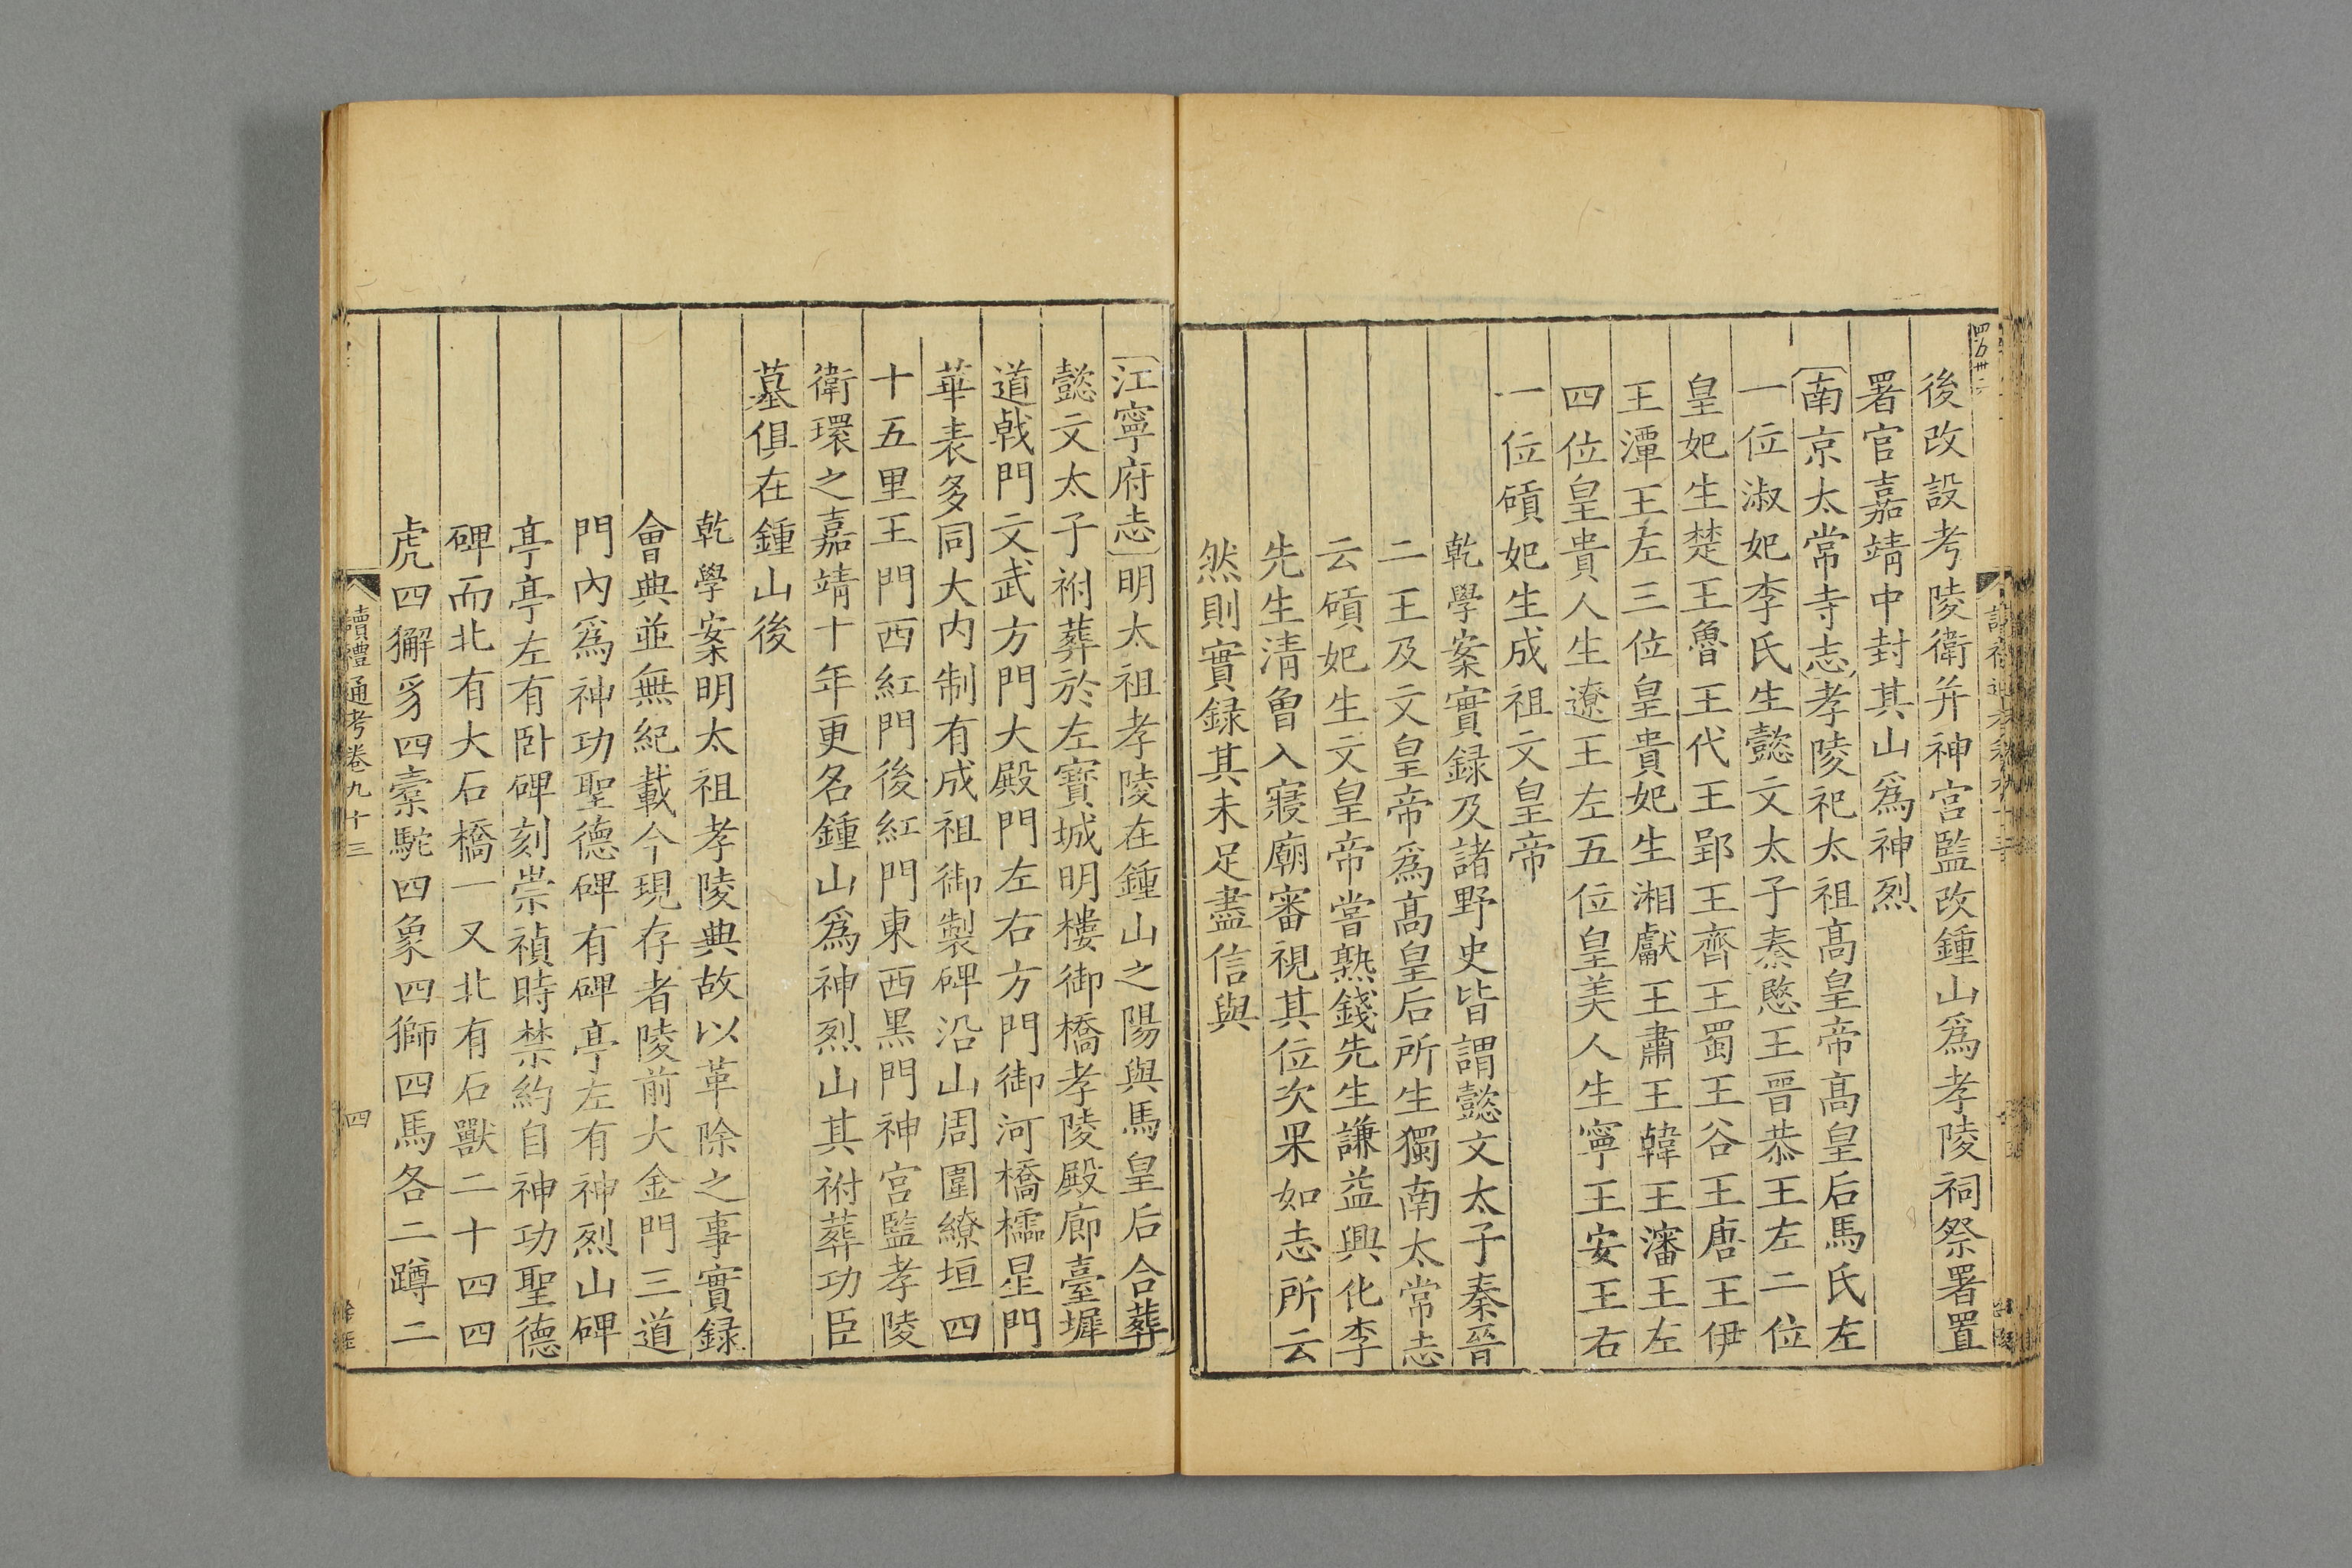 後改設考陵衛并神宮監改鍾山爲孝陵祠祭署置
署官嘉靖中封其山爲神烈
〔南京太常寺志〕孝陵祀太祖高皇帝高皇后馬氏左
一位淑妃李氏生懿文太子秦愍王晉恭王左二位
皇妃生楚王魯王代王郢王齊王蜀王谷王唐王伊
王潭王左三位皇貴妃生湘獻王肅王韓王瀋王左
四位皇貴人生遼王左五位皇美人生寧王安王右
一位碩妃生成祖文皇帝
乾學案實録及諸野史皆謂懿文太子秦晉
二王及文皇帝爲高皇后所生獨南太常志
云碩妃生文皇帝嘗熟錢先生謙益興化李
先生清曾入寢廟審視其位次果如志所云
然則實録其未足盡信與
〔江寧府志〕明太祖孝陵在鍾山之陽與馬皇后合葬
懿文太子祔葬於左寶城明樓御橋孝陵殿廊臺墀
道戟門文武方門大殿門左右方門御河橋櫺星門
華表多同大內制有成祖御製碑沿山周圍繚垣四
十五里王門西紅門後紅門東西黑門神宮監孝陵
衛環之嘉靖十年更名鍾山爲神烈山其祔葬功臣
墓俱在鍾山後
乾學案明太祖孝陵典故以革除之事實録
會典並無紀載今現存者陵前大金門三道
門內爲神功聖德碑有碑亭左有神烈山碑
亭亭左有臥碑刻崇禎時禁約自神功聖德
碑而北有大石橋一又北有石獸二十四四
虎四獬豸四橐駝四象四獅四馬各二蹲二
讀禮通考卷九十三
四